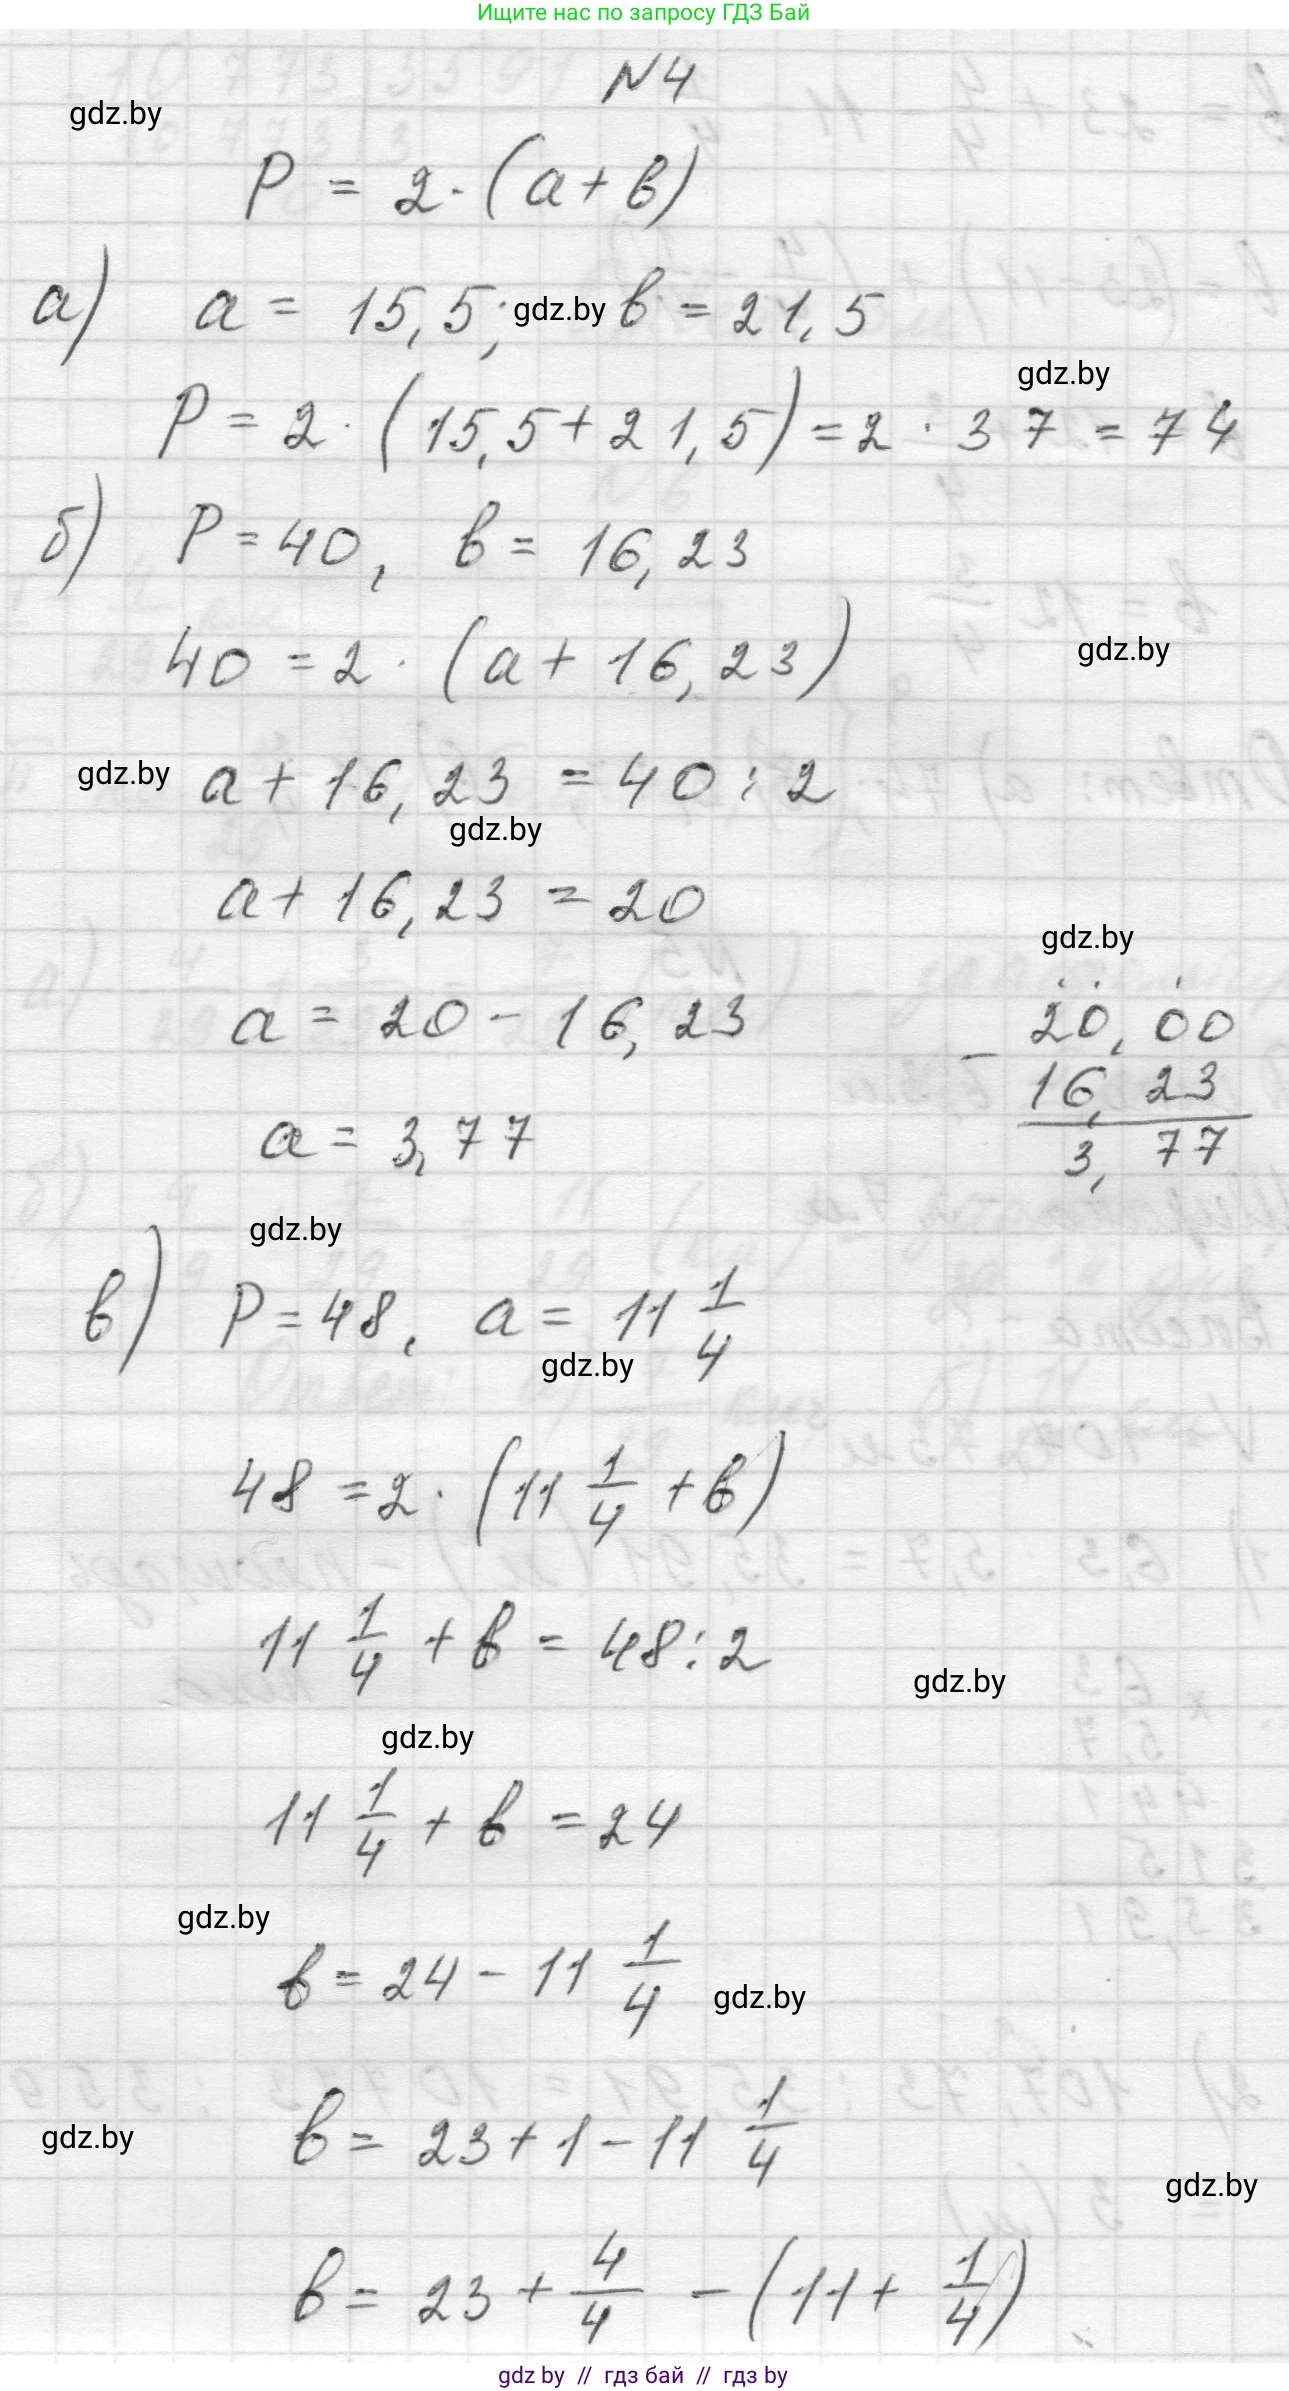 Ищите нас по запросу ГДЗ Бай
N4
gdz.by
P = 2·(a+b)
а) a = 15,5; gdz.by b = 21,5
gdz.by
P = 2·(15,5+21,5) = 2·37 = 74
б) P = 40, b = 16,23
40 = 2·(a+16,23)
gdz.by
gdz.by a + 16,23 = 40 : 2
gdz.by
a + 16,23 = 20
gdz.by
a = 20 - 16,23
20,00
- 16,23
3,77
a = 3,77
gdz.by
в) P = 48, a = 11 1/4
gdz.by
48 = 2·(11 1/4 + b)
11 1/4 + b = 48 : 2
gdz.by
gdz.by
11 1/4 + b = 24
gdz.by
b = 24 - 11 1/4
gdz.by
b = 23 + 1 - 11 1/4
gdz.by
gdz.by
b = 23 + 4/4 - (11 + 1/4)
gdz by // гдз бай // гдз by